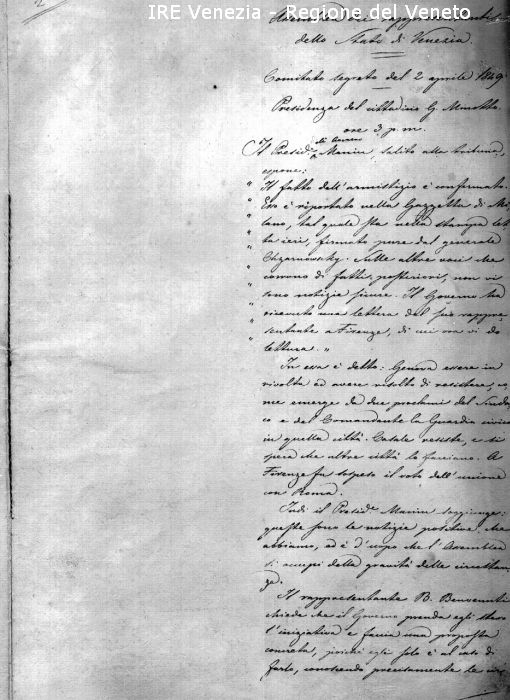 IRE Venezia - Regione del Veneto
dello Stato di Venezia.
Comitato segreto del 2 aprile 1849
Presidenza del cittadino G. Minotto
ore 3 p.m.
Il Presid.e Manin, salito alla tribuna,
espone:
" Il fatto dell'armistizio è confermato.
" Esso è riportato nella Gazzetta di Mi-
" lano, tal quale sta nella stampa let-
" ta ieri, firmato pure dal generale
" Chzarnowsky. Sulle altre voci che
" corrono di fatti posteriori, non vi
" sono notizie sicure. Il Governo ha
" ricevuto una lettera del suo rappre-
" sentante a Firenze, di cui ora vi do
" lettura. "
In essa è detto: Genova essere in
rivolta ed avere risolto di resistere, co-
me emerge da due proclami del Sinda-
co e del Comandante la Guardia civica
in quella città. Casale resiste, e si
spera che altre città lo facciano. A
Firenze fu sospeso il voto dell'unione
con Roma.
Indi il Presid.e Manin soggiunge:
queste sono le notizie positive che
abbiamo, ed è d'uopo che l'Assemblea
si occupi della gravità delle circostan-
ze.
Il rappresentante B. Benvenuti
chiede che il Governo prenda egli stesso
l'iniziativa e faccia una proposta
concreta, poichè egli solo è al caso di
farlo, conoscendo precisamente le cir-